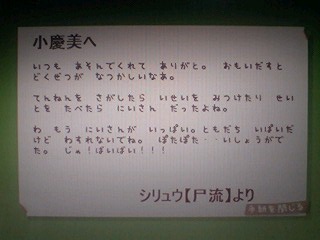 小慶美へ
いつも　あそんでくれて　ありがと。　おもいだすと
どくぜつが　なつかしいなあ。
てんねんを　さがしたら　いせいを　みつけたり　せい
とを　たべたら　にいさん　だったよね。
わ　もう　にいさんが　いっぱい。ともだち　いぱいだ
けど　わすれないでね。　ぽたぽた・・いしょうがで
た。　じゃ！ばいばい！！！
シリュウ【尸流】より
手紙を閉じる